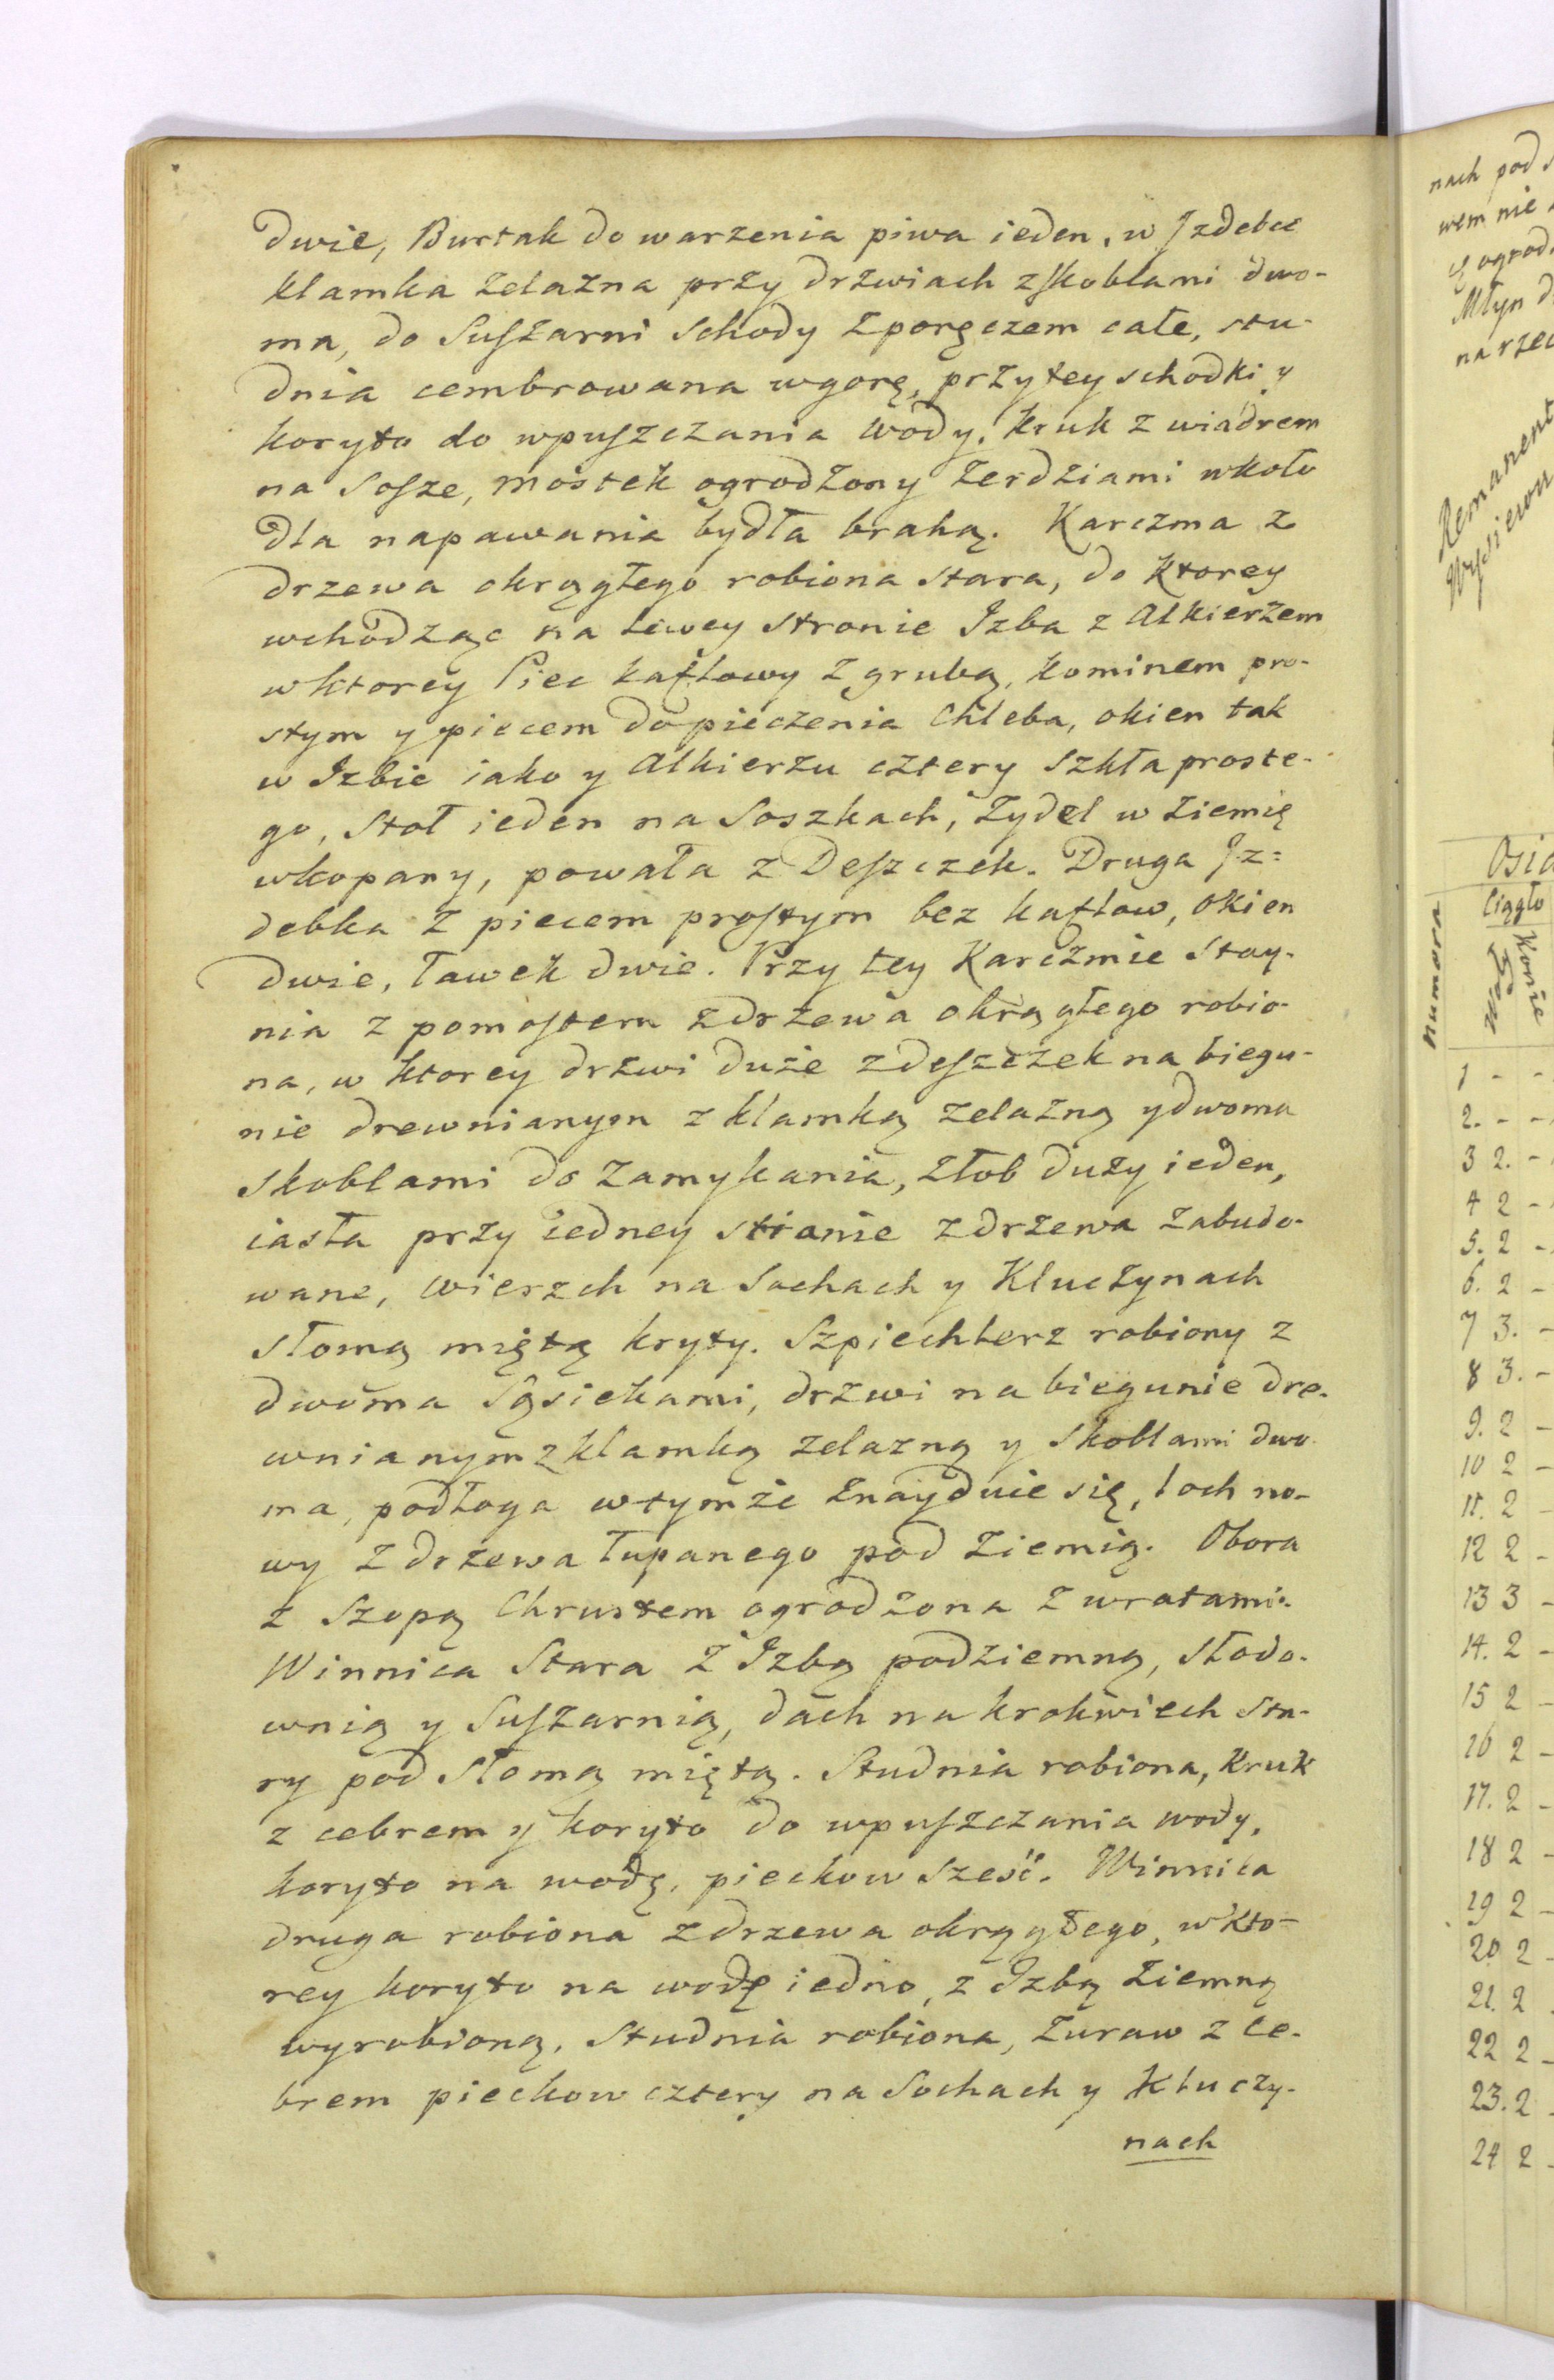 dwie, Burtak do warzenia piwa ieden, w Jzdebce
klamka żelazna przy drzwiach zskoblami dwo-
ma, do Suszarni Schody z poręczem całe, stu-
dnia cembrowana wgorę, przytey schodki y
koryto do wpuszczania wody, kruk z wiadrem
na Sosze, mostek ogrodzony żerdziami wkoło
dla napawania bydła brahą. Karczma z
drzewa okrągłego robiona stara, do Ktorey
wchodząc na lewey stronie Izba z Alkierzem
w ktorey Piec kaflowy z grubą, kominem pro-
stym y piecem do pieczenia Chleba, okien tak
w Izbie iako y Alkierzu cztery szkła proste-
go, Stoł ieden na Soszkach, Zydel w ziemię
wkopany, powała z Deszczek. Druga Jz=
debka z piecem prostym bez kaflow, okien
dwie, ławek dwie. Przy tey Karczmie Stay-
nia z pomostem z drzewa okrągłego robio-
na, w ktorey drzwi duże z deszczek na biegu-
nie drewnianym z klamką żelazną y dwoma
skoblami do zamykania, żłob duży ieden,
iasła przy iedney stianie z drzewa zabudo-
wane, wierzch na Sochach y Kluczynach
słomą miętą kryty. Szpiechlerz robiony z
dwoma Sąsiekami, drzwi na biegunie dre-
wnianym z klamką żelazną y skoblami dwo
ma, podłoga w tymże znayduie się, loch no-
wy z drzewa łupanego pod ziemią. Obora
z Szopą Chrustem ogrodzona z wrotami.
Winnica Stara z Izbą podziemną, słodo-
wnią y Suszarnią, dach na krokwiech sta-
ry pod słomą miętą. Studnia robiona, kruk
z cebrem y koryto do wpuszczania wody,
koryto na wodę, pieckow sześć. Winnica
druga robiona z drzewa okrągłego, w kto-
rey koryto na wodę iedno, z Izbą ziemną
wyrobioną, studnia robiona, żuraw z ce-
brem pieckow cztery na Sochach y Kluczy-
nach
nach pod
wem nie
ogrod
Młyn
na rzec
Remanent
Osia
Ciągło
Numera
Konie
1 - -
2. - -
3 2. -
4 2 -
5. 2 -
6. 2 -
7 3. -
8 3. -
9. 2 -
10 2 -
11. 2 -
12 2 -
13 3 -
14. 2 -
15 2 -
16 2 -
17. 2 -
18 2 -
19 2 -
20 2 -
21. 2
22 2 -
23. 2
24 2 -